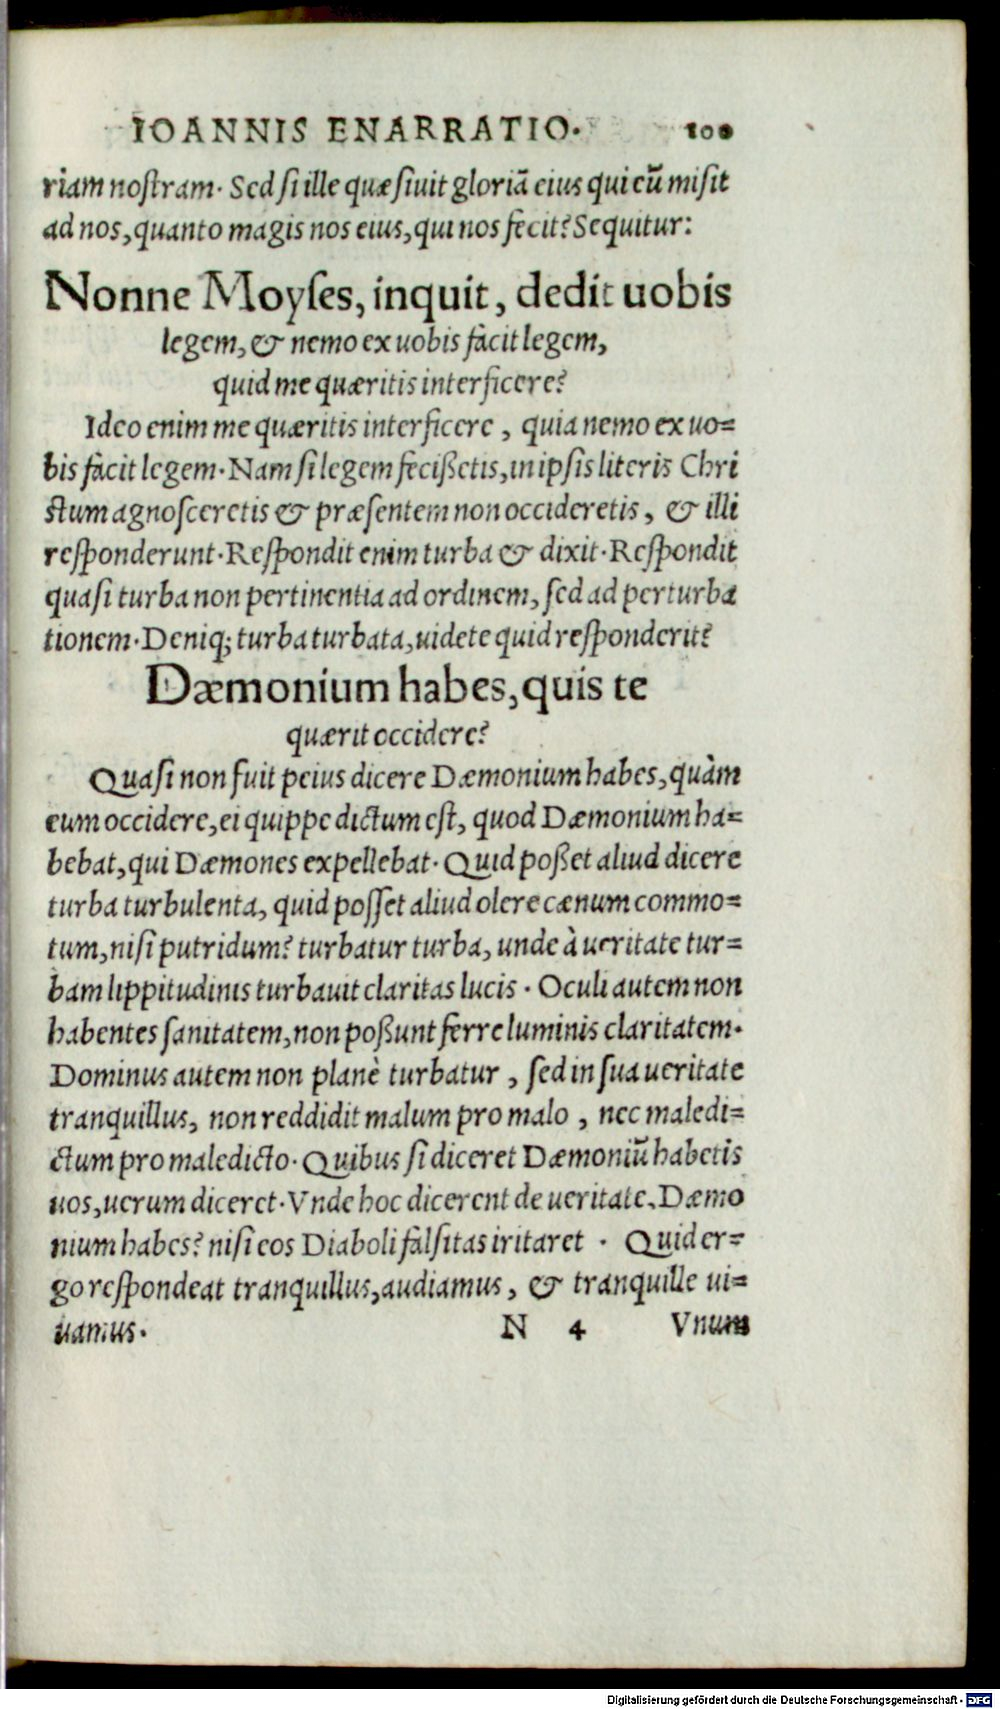 IOANNIS ENARRATIO. 100
riam nostram. Sed si ille quæsiuit gloriā eius qui eū misit
ad nos, quanto magis nos eius, qui nos fecit? Sequitur:
Nonne Moyses, inquit, dedit uobis
legem, & nemo ex uobis facit legem,
quid me quæritis interficere?
Ideo enim me quæritis interficere, quia nemo ex uo=
bis facit legem. Nam si legem fecißetis, in ipsis literis Chri
stum agnosceretis & præsentem non occideretis, & illi
responderunt. Respondit enim turba & dixit. Respondit
quasi turba non pertinentia ad ordinem, sed ad perturba
tionem. Deniq; turba turbata, uidete quid responderit?
Dæmonium habes, quis te
quærit occidere?
Quasi non fuit peius dicere Dæmonium habes, quàm
eum occidere, ei quippe dictum est, quod Dæmonium ha=
bebat, qui Dæmones expellebat. Quid poßet aliud dicere
turba turbulenta, quid posset aliud olere cænum commo=
tum, nisi putridum? turbatur turba, unde à ueritate tur=
bam lippitudinis turbauit claritas lucis. Oculi autem non
habentes sanitatem, non poßunt ferre luminis claritatem.
Dominus autem non planè turbatur, sed in sua ueritate
tranquillus, non reddidit malum pro malo, nec maledi=
ctum pro maledicto. Quibus si diceret Dæmoniū habetis
uos, uerum diceret. Vnde hoc dicerent de ueritate, Dæmo
nium habes? nisi eos Diaboli falsitas iritaret. Quid er=
go respondeat tranquillus, audiamus, & tranquille ui=
uamus. N 4 Vnum
Digitalisierung gefördert durch die Deutsche Forschungsgemeinschaft - DFG